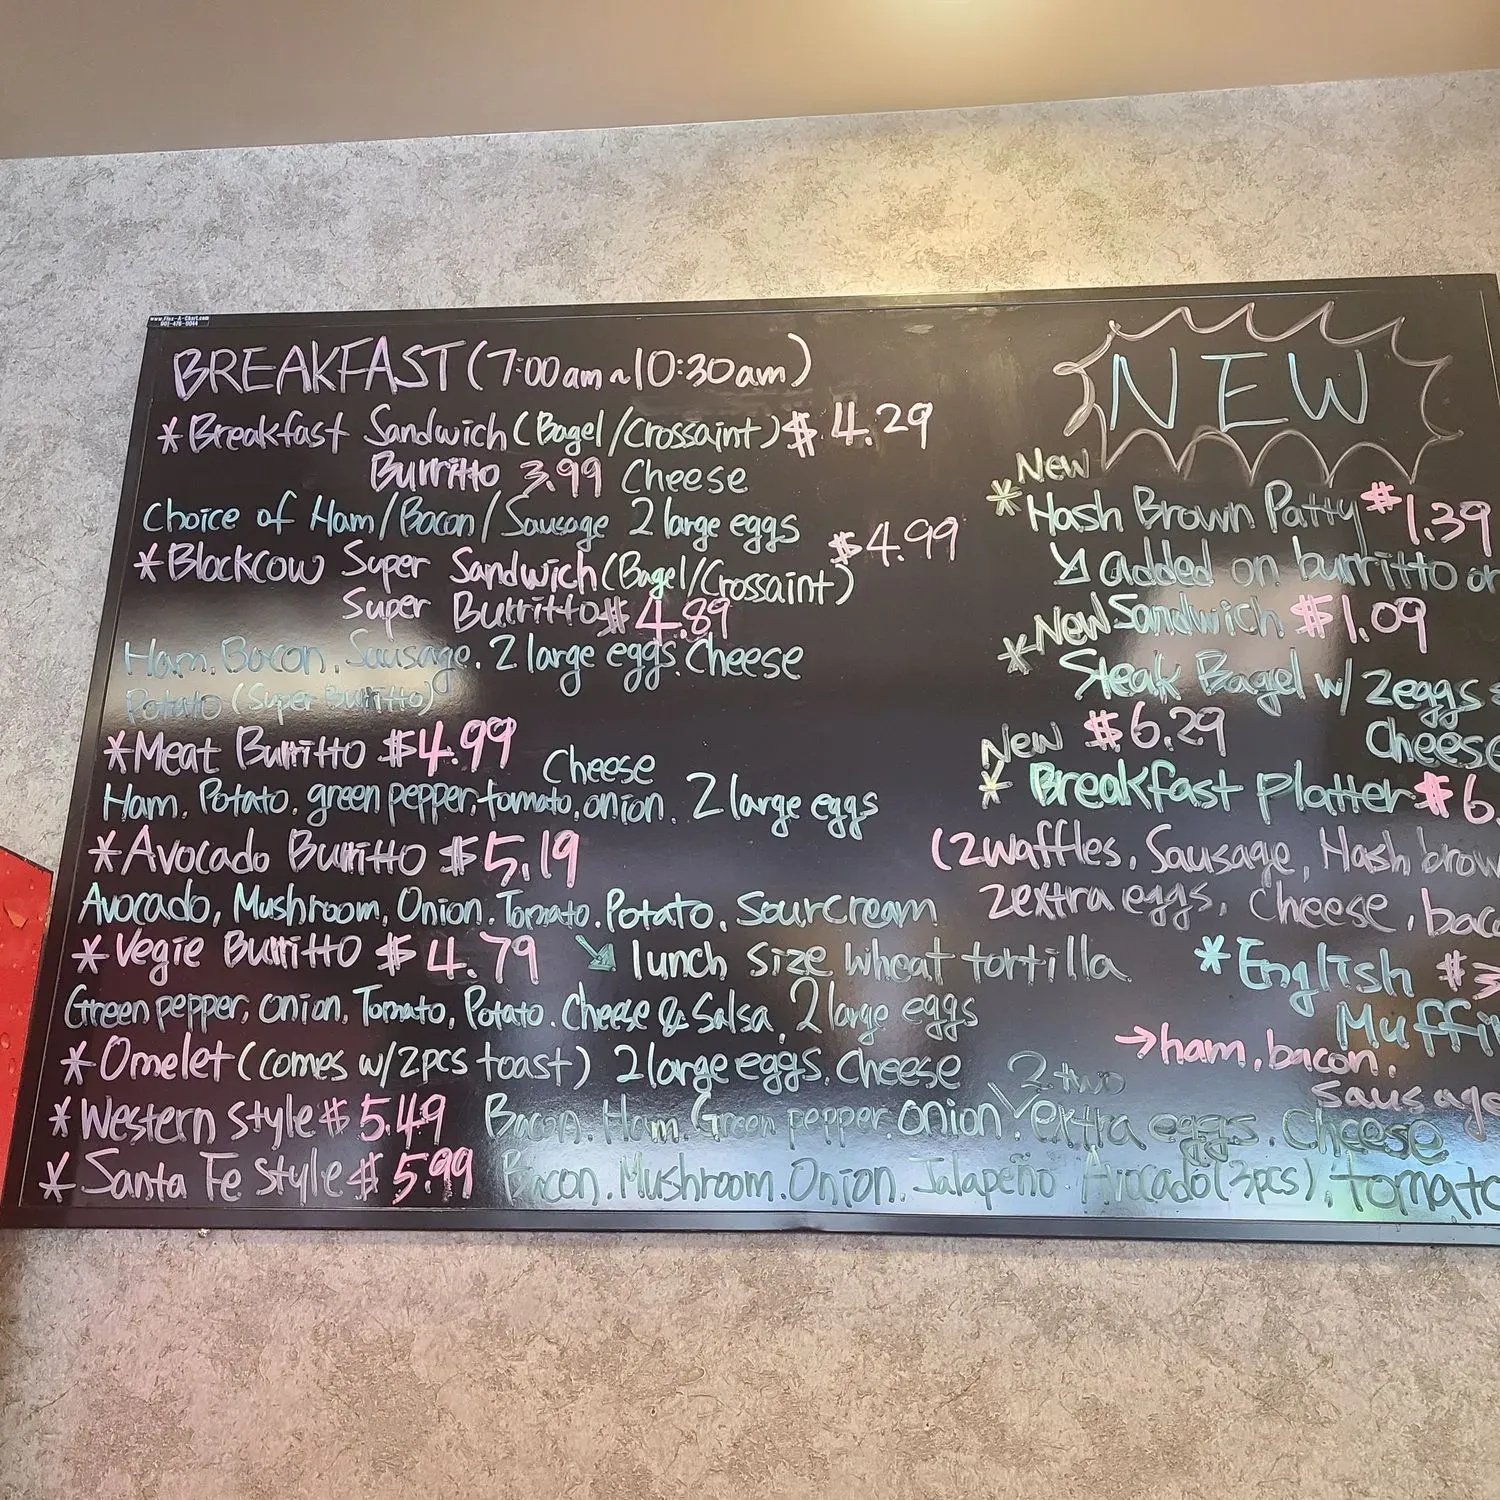 www.Flex-A-Chart.com
BREAKFAST (7:00am~10:30am)
*Breakfast Sandwich (Bagel/Crossaint) $4.29
Burritto 3.99 Cheese
Choice of Ham/Bacon/Sausage 2 large eggs
*Blackcow Super Sandwich (Bagel/Crossaint) $4.99
Super Burritto $4.89
Ham. Bacon. Sausage. 2 large eggs. Cheese
Potato (Super Burritto)
*Meat Burritto $4.99
Cheese
Ham. Potato. green pepper. tomato. onion. 2 large eggs
*Avocado Burritto $5.19
Avocado, Mushroom, Onion. Tomato. Potato. Sourcream
*Vegie Burritto $4.79 ↘ lunch size wheat tortilla
Green pepper, onion, Tomato, Potato. Cheese & Salsa, 2 large eggs
*Omelet (comes w/2pcs toast) 2 large eggs. Cheese
*Western style $5.49 Bacon. Ham. Green pepper. onion.
2 two
extra eggs. Cheese
*Santa Fe style $5.99 Bacon. Mushroom. Onion. Jalapeño Avocado (3pcs), tomato
NEW
New
*Hash Brown Patty $1.39
↘ added on burritto or
Sandwich $1.09
*New
Steak Bagel w/ 2eggs
$6.29 Cheese
New
*Breakfast Platter $6.
(2waffles, Sausage, Hash brow
2extra eggs, Cheese, bac
*English $3
Muffin
→ham. bacon.
Sausage